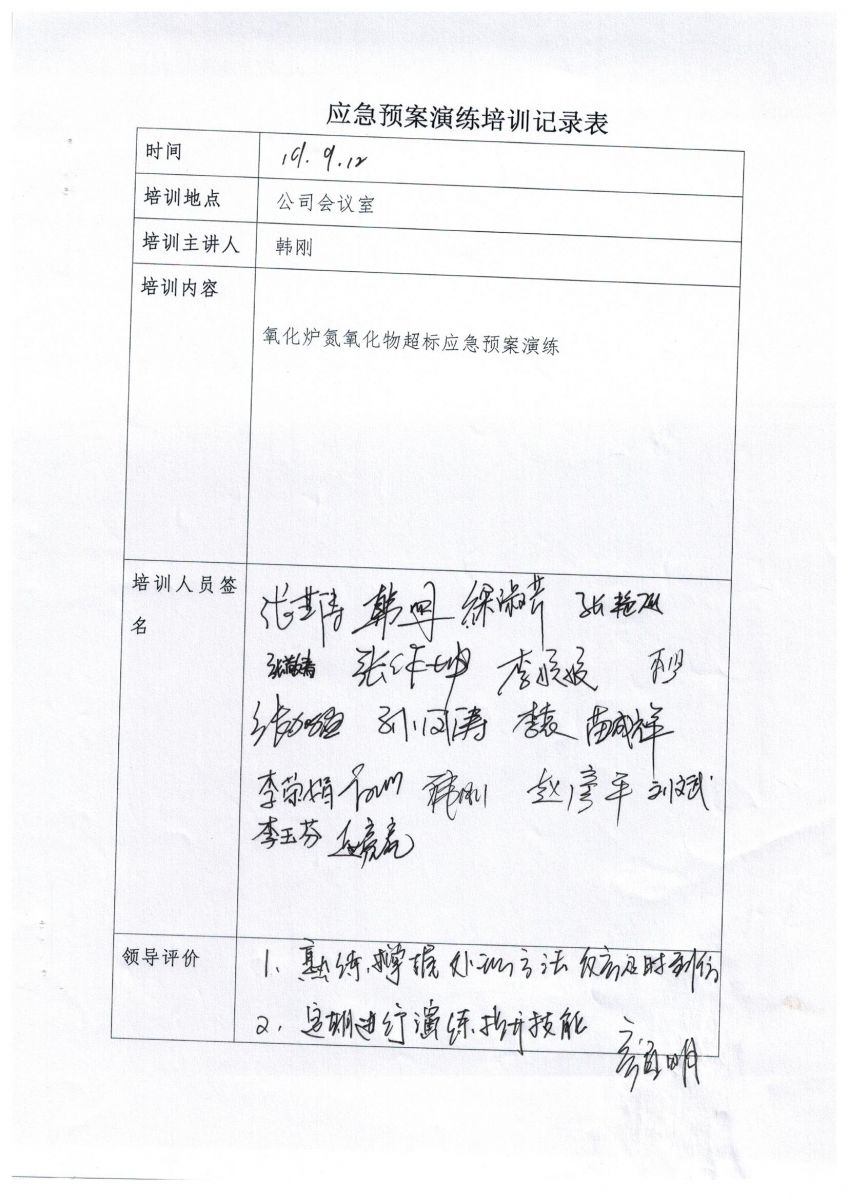 应急预案演练培训记录表
时间 19.9.12
培训地点 公司会议室
培训主讲人 韩刚
培训内容
氧化炉氮氧化物超标应急预案演练
培训人员签
名
韩 徐淑芹 张艳
张 李媛媛
张 孙 涛 李 苗成祥
李荣娟 韩刚 赵彦平 刘文武
李玉芬 亮亮
领导评价
1、熟练掌握处理方法 及时到位
2、定期进行演练提升技能
明